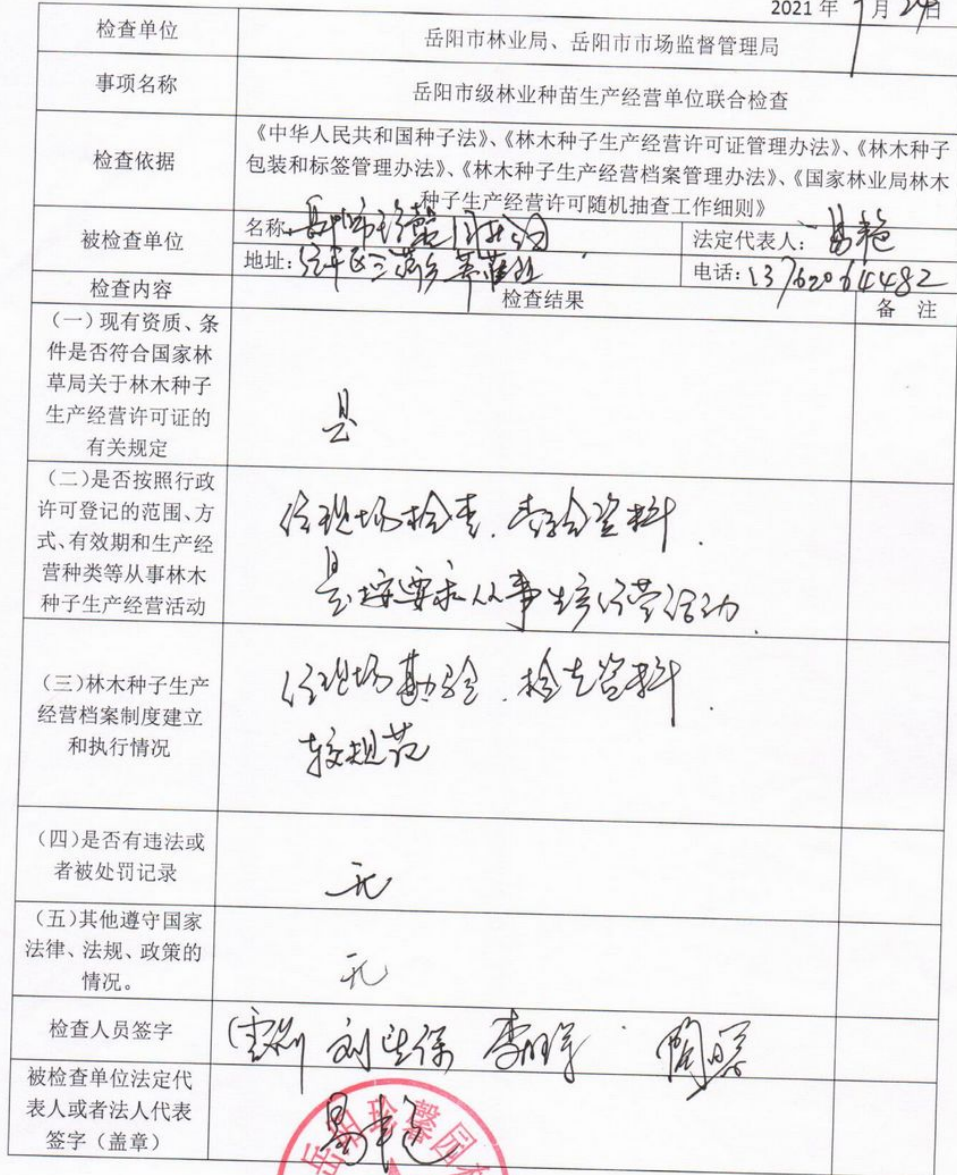 2021 年 月 24日
检查单位
岳阳市林业局、岳阳市市场监督管理局
事项名称
岳阳市级林业种苗生产经营单位联合检查
检查依据
《中华人民共和国种子法》、《林木种子生产经营许可证管理办法》、《林木种子
包装和标签管理办法》、《林木种子生产经营档案管理办法》、《国家林业局林木
种子生产经营许可随机抽查工作细则》
被检查单位
名称: 岳阳市珍馨园林
法定代表人: 易艳
地址:
电话: 13762064482
检查内容
检查结果
备 注
(一)现有资质、条
件是否符合国家林
草局关于林木种子
生产经营许可证的
有关规定
是
(二)是否按照行政
许可登记的范围、方
式、有效期和生产经
营种类等从事林木
种子生产经营活动
经现场检查、查验资料.
是按要求从事生产经营活动.
(三)林木种子生产
经营档案制度建立
和执行情况
经现场勘验、检查资料.
较规范
(四)是否有违法或
者被处罚记录
无
(五)其他遵守国家
法律、法规、政策的
情况。
无
检查人员签字
被检查单位法定代
表人或者法人代表
签字(盖章)
易艳